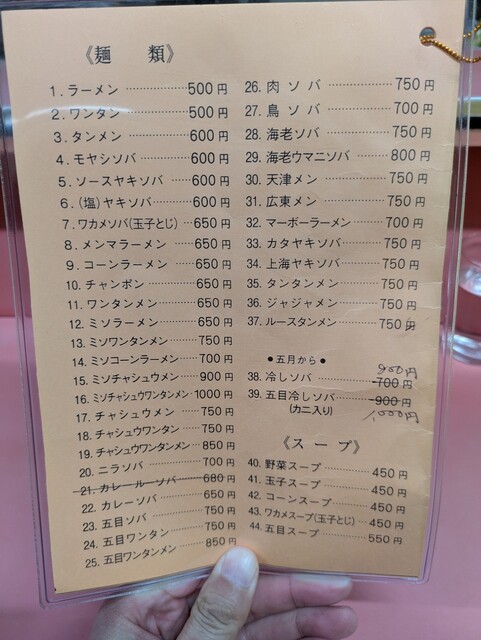 《麺　類》
1. ラーメン…………500円
2. ワンタン…………500円
3. タンメン…………600円
4. モヤシソバ………600円
5. ソースヤキソバ……600円
6. (塩)ヤキソバ………600円
7. ワカメソバ(玉子とじ)…650円
8. メンマラーメン……650円
9. コーンラーメン……650円
10. チャンポン…………650円
11. ワンタンメン………650円
12. ミソラーメン………650円
13. ミソワンタンメン……750円
14. ミソコーンラーメン……700円
15. ミソチャシュウメン……900円
16. ミソチャシュウワンタンメン…1000円
17. チャシュウメン……750円
18. チャシュウワンタン……750円
19. チャシュウワンタンメン…850円
20. ニラソバ…………700円
21. カレールーソバ……680円
22. カレーソバ…………650円
23. 五目ソバ…………750円
24. 五目ワンタン………750円
25. 五目ワンタンメン……850円
26. 肉ソバ…………750円
27. 鳥ソバ…………700円
28. 海老ソバ…………750円
29. 海老ウマニソバ……800円
30. 天津メン…………750円
31. 広東メン…………750円
32. マーボーラーメン……700円
33. カタヤキソバ………750円
34. 上海ヤキソバ………750円
35. タンタンメン………750円
36. ジャジャメン………750円
37. ルースタンメン……750円
●五月から●
900円
38. 冷しソバ…………700円
39. 五目冷しソバ………900円
(カニ入り) 1,000円
《スープ》
40. 野菜スープ…………450円
41. 玉子スープ…………450円
42. コーンスープ………450円
43. ワカメスープ(玉子とじ)…450円
44. 五目スープ…………550円